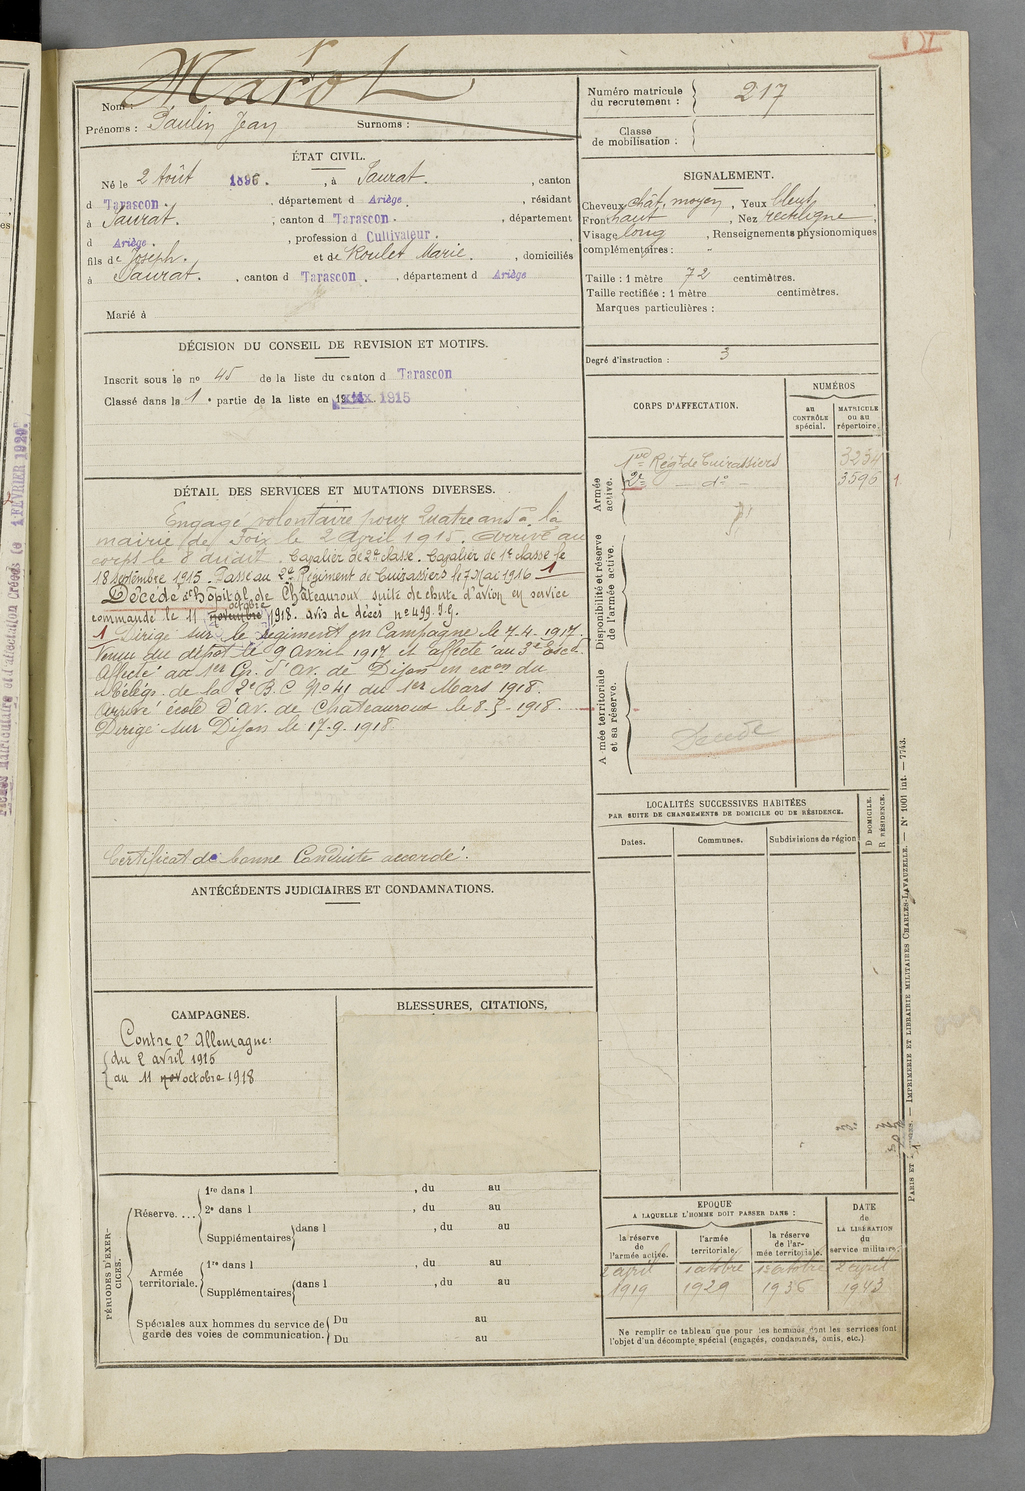 Marot
Nom :
Prénoms : Paulin Jean Surnoms :
Numéro matricule
du recrutement : 217
Classe
de mobilisation :
ÉTAT CIVIL.
Né le 2 Août 1896. , à Saurat. , canton
d Tarascon. , département d Ariège. , résidant
à Saurat. , canton d Tarascon. , département
d Ariège. , profession d Cultivateur. ,
fils de Joseph. et de Roulet Marie. , domiciliés
à Saurat. , canton d Tarascon. , département d Ariège
Marié à
SIGNALEMENT.
Cheveux chât. moyen , Yeux bleus ,
Front haut , Nez rectiligne ,
Visage long , Renseignements physionomiques
complémentaires : "
Taille : 1 mètre 72 centimètres.
Taille rectifiée : 1 mètre centimètres.
Marques particulières :
Degré d'instruction : 3
DÉCISION DU CONSEIL DE REVISION ET MOTIFS.
Inscrit sous le no 45 de la liste du canton d Tarascon
Classé dans la 1 e partie de la liste en 1915
DÉTAIL DES SERVICES ET MUTATIONS DIVERSES.
Engagé volontaire pour quatre ans à la
mairie de Foix le 2 Avril 1915. Arrivé au
corps le 8 dudit. Cavalier de 2e classe. Cavalier de 1e classe le
18 septembre 1915. Passé au 2e Régiment de Cuirassiers le 7 Mai 1916 1
Décédé à l'hôpital de Châteauroux suite de chute d'avion en service
commandé le 11 novembre octobre 1918. avis de décès no 499.J.G.
1 Dirigé sur le Régiment en Campagne le 7.4.1917.
Venu du dépôt le 9 avril 1917 et affecté au 3e Escd.
Affecté au 1er Gr. d'Av. de Dijon en exon du
Télégr. de la 2e B.C No 41 du 1er Mars 1918.
Arrivé école d'Av. de Châteauroux le 8.5.1918.
Dirigé sur Dijon le 17.9.1918
Certificat de bonne Conduite accordé.
CORPS D'AFFECTATION.
NUMÉROS
au
CONTRÔLE
spécial.
MATRICULE
ou au
répertoire.
Armée
active.
1er Régt de Cuirassiers 3234
2e — do — 3596 1
Disponibilité et réserve
de l'armée active.
Armée territoriale
et sa réserve.
LOCALITÉS SUCCESSIVES HABITÉES
PAR SUITE DE CHANGEMENTS DE DOMICILE OU DE RÉSIDENCE.
Dates.
Communes.
Subdivisions de région
D DOMICILE.
R RÉSIDENCE.
ANTÉCÉDENTS JUDICIAIRES ET CONDAMNATIONS.
CAMPAGNES.
Contre l'Allemagne:
du 2 avril 1915
au 11 nov octobre 1918
BLESSURES, CITATIONS,
PÉRIODES D'EXERCICES.
Réserve....
1re dans l , du au
2e dans l , du au
Supplémentaires dans l , du au
Armée
territoriale.
1re dans l , du au
Supplémentaires dans l , du au
Spéciales aux hommes du service de
garde des voies de communication.
Du au
Du au
EPOQUE
A LAQUELLE L'HOMME DOIT PASSER DANS :
la réserve
de
l'armée active.
l'armée
territoriale.
la réserve
de l'ar-
mée territoriale.
DATE
de
LA LIBÉRATION
du
service militaire.
2 avril 1 octobre 1 octobre 2 avril
1919 1929 1936 1943
Ne remplir ce tableau que pour les hommes dont les services font
l'objet d'un décompte spécial (engagés, condamnés, omis, etc.)
PARIS ET — IMPRIMERIE ET LIBRAIRIE MILITAIRES CHARLES-LAVAUZELLE. — No 1001 int. — 7743.